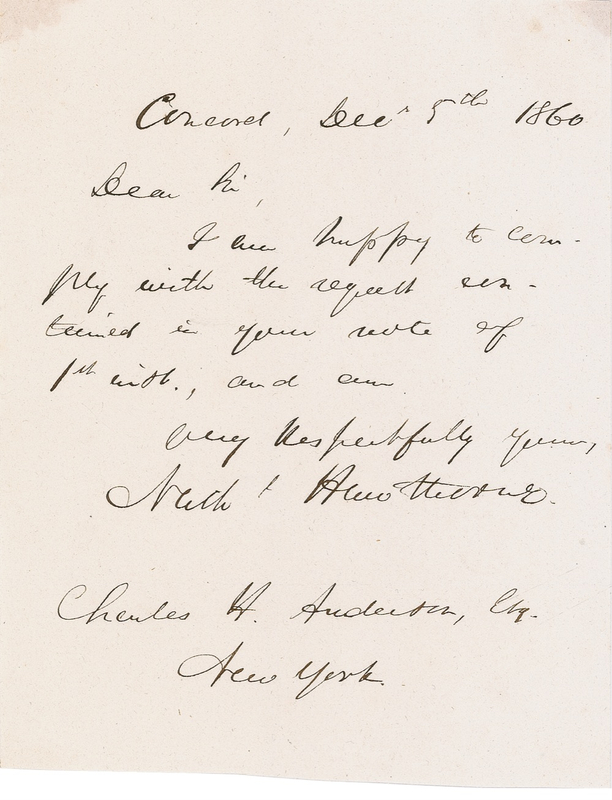 Concord, Decr 5th 1860
Dear Sir,
I am happy to com-
ply with the request con-
tained in your note of
1st inst., and am
Very Respectfully yours,
Nathl Hawthorne.
Charles H. Anderson, Esq.
New York.